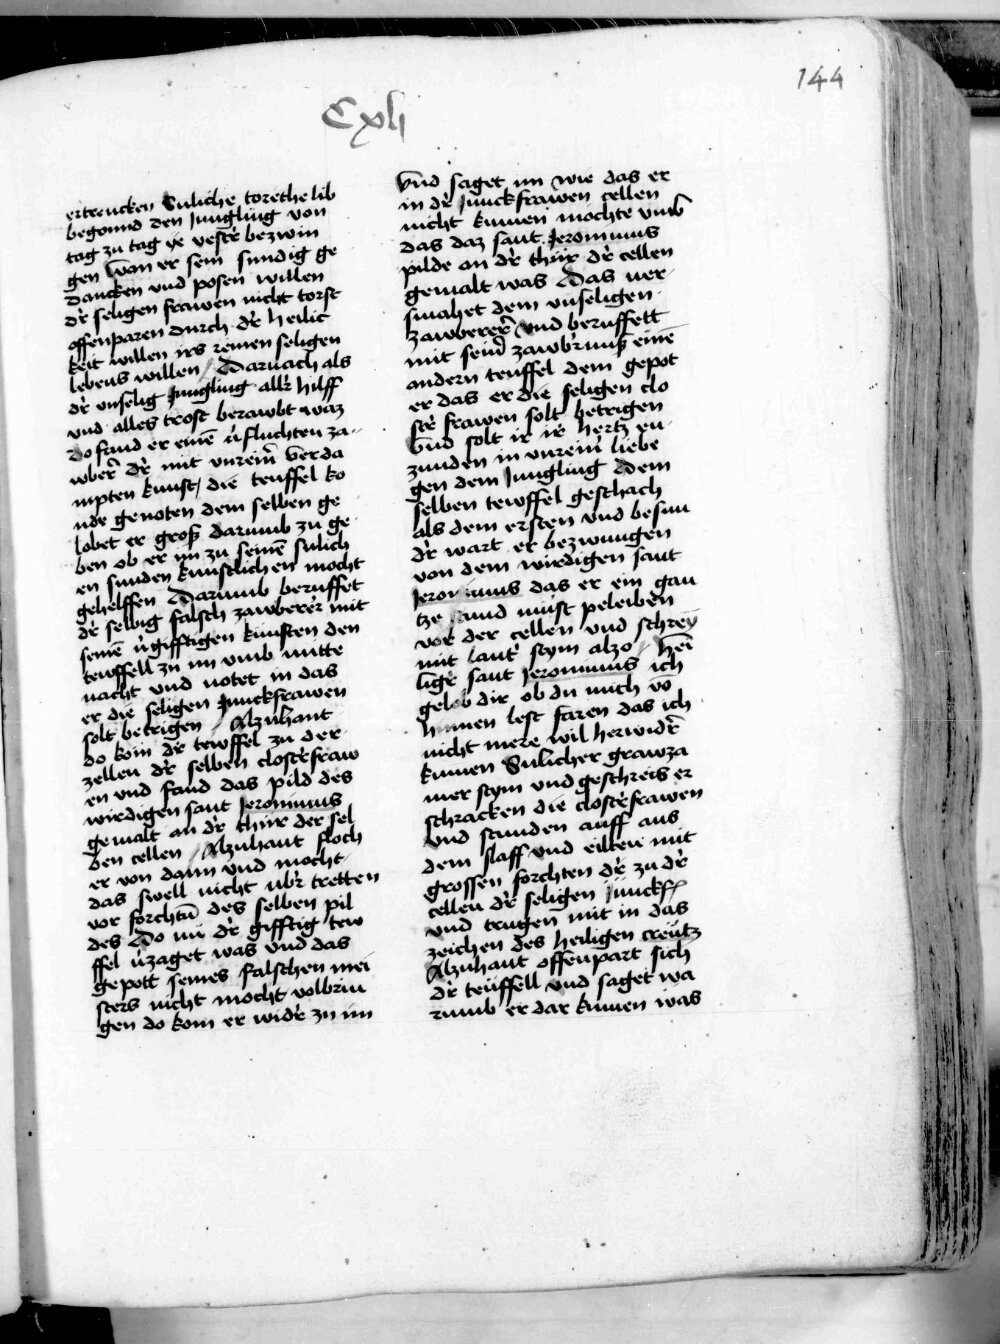 144
Cxlj
ertrencken Suliche torethe lib
begonnd den Jungling von
tag zu tag ye vester bezwin
gen wan er sein sundig ge
dancken vnd posen willen
dr seligen frawen nicht torst
offenparen durch dr heilic
keit willen irs reinen seligen
lebens willen / Darnach als
dr vnselig Jungling allr hilff
vnd alles trost berawbt waz
do fand er einē v̉fluchten za-
wberr̄ dr mit vnreinē verda
mpten kunst / die teuffel ko
nde genoten dem selben ge
lobet er groß darumb zu ge
ben ob er im zu seinē sulich
en sunden kunstlichen mocht
gehelffen Darumb beruffet
dr selbig falsch zawberer mit
seinē v̉gifftigen kunsten den
tewffell zu im vmb mitte
nacht vnd notet in das
er die seligen Junckfrawen
solt betrigen / Alzuhant
do kom dr tewffel zu der
zellen dr selben closterfraw
en vnd fand das pild des
wirdigen sant Jeronimus
gemalt an dr thur der sel
ben cellen / Alzuhant floch
er von dann vnd mocht
das swell nicht vbr tretten
vor forchtū des selben pil
des Do nu dr gifftig tew
ffel v̉zaget was vnd das
gepott seines falschen mei
sters nicht mocht volbrin
gen do kom er widr zu im
Vnd saget im wie das er
in dr Junckfrawen cellen
nicht kumen mochte vmb
das daz sant Jeronimus
pilde an dr thur dr cellen
gemalt was Das ver-
smahet dem vnseligen
zawberer vnd beruffett
mit seinē zawbrnuß einē
andern teuffel dem gepot
er das er die seligen clo
ster frawen solt betrigen
Vnd solt ir ir hertz en-
zunden in vnreinr̄ liebe
gen dem Jungling Dem
selben tewffel geschach
als dem ersten vnd besun
dr wart er bezwungen
von dem wirdigen sant
Jeronimus das er ein gan
tze stund must peleiben
vor der cellen vnd schrey
mit lautr̄ stym alzo / Hei
ligr sant Jeronimus ich
gelob dir ob du mich vō
hinnen lest faren das ich
nicht mere wil herwidr̄
kumen Sulicher grawza
mer stym vnd geschreis er
schracken die closterfrawen
Vnd stunden auff aus
dem slaff vnd eilten mit
grossen forchten dr zu dr
cellen dr seligen Junckf
vnd trugen mit in das
zeichen des heiligen creutz
Alzuhant offenpart sich
dr teuffell vnd saget wa
rumb er dar kumen was